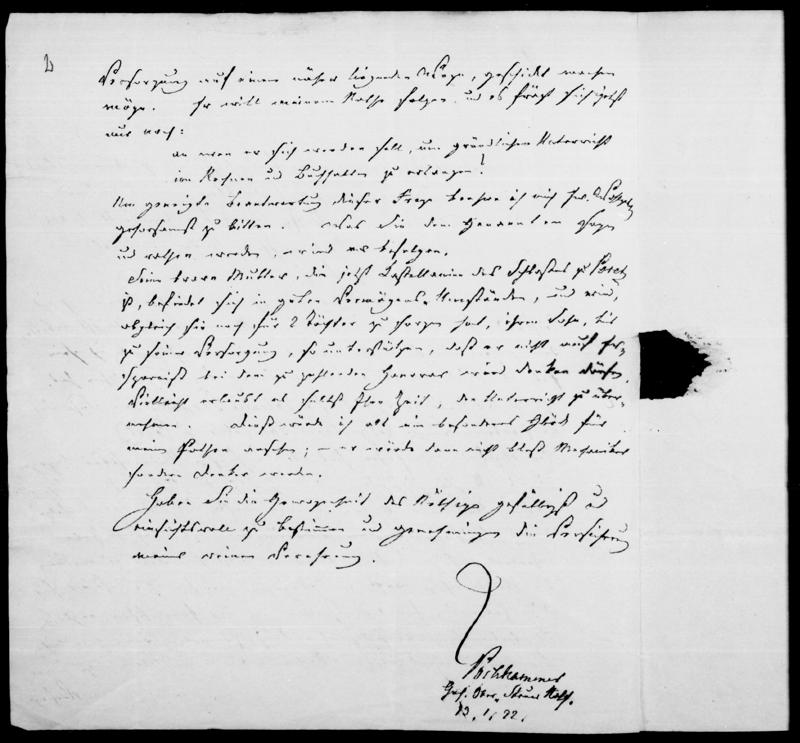 2
Versorgung auf einem näher liegenden Wege, geschickt machen
möge. Er will meinem Rathe folgen, und es frägt sich jetzt
nur noch:
an wen er sich wenden soll, um gründlichen Unterricht
im Rechnen und Buchhalten zu erlangen!
Um geneigte Beantwortung dieser Frage beehre ich mich Ew.
gehorsamst zu bitten. Was Sie dem Genannten sagen
und rathen werden, wird er befolgen.
Seine brave Mutter, die jetzt Castellanin des Schlosses zu Paretz
ist, befindet sich in guten Vermögens-Umständen, und wird,
obgleich sie noch für 2 Töchter zu sorgen hat, ihren Sohn, bis
zu seiner Versorgung, so unterstützen, daß er nicht auf Er-
sparniß bei dem zu zahlenden Honorar wird denken dürfen.
Vielleicht erlaubt es selbst Ihre Zeit, den Unterricht zu über-
nehmen. Dieß würde ich als ein besonderes Glück für
meinen Pathen ansehen; – er würde dann nicht bloß Mechaniker
sondern Denker werden.
Haben Sie die Gewogenheit das Nöthige gefälligst und
einsichtsvoll zu bestimmen und genehmigen die Versicherung
meiner reinen Verehrung.
Pochhammer
Geh. Ober-Steuer Rath.